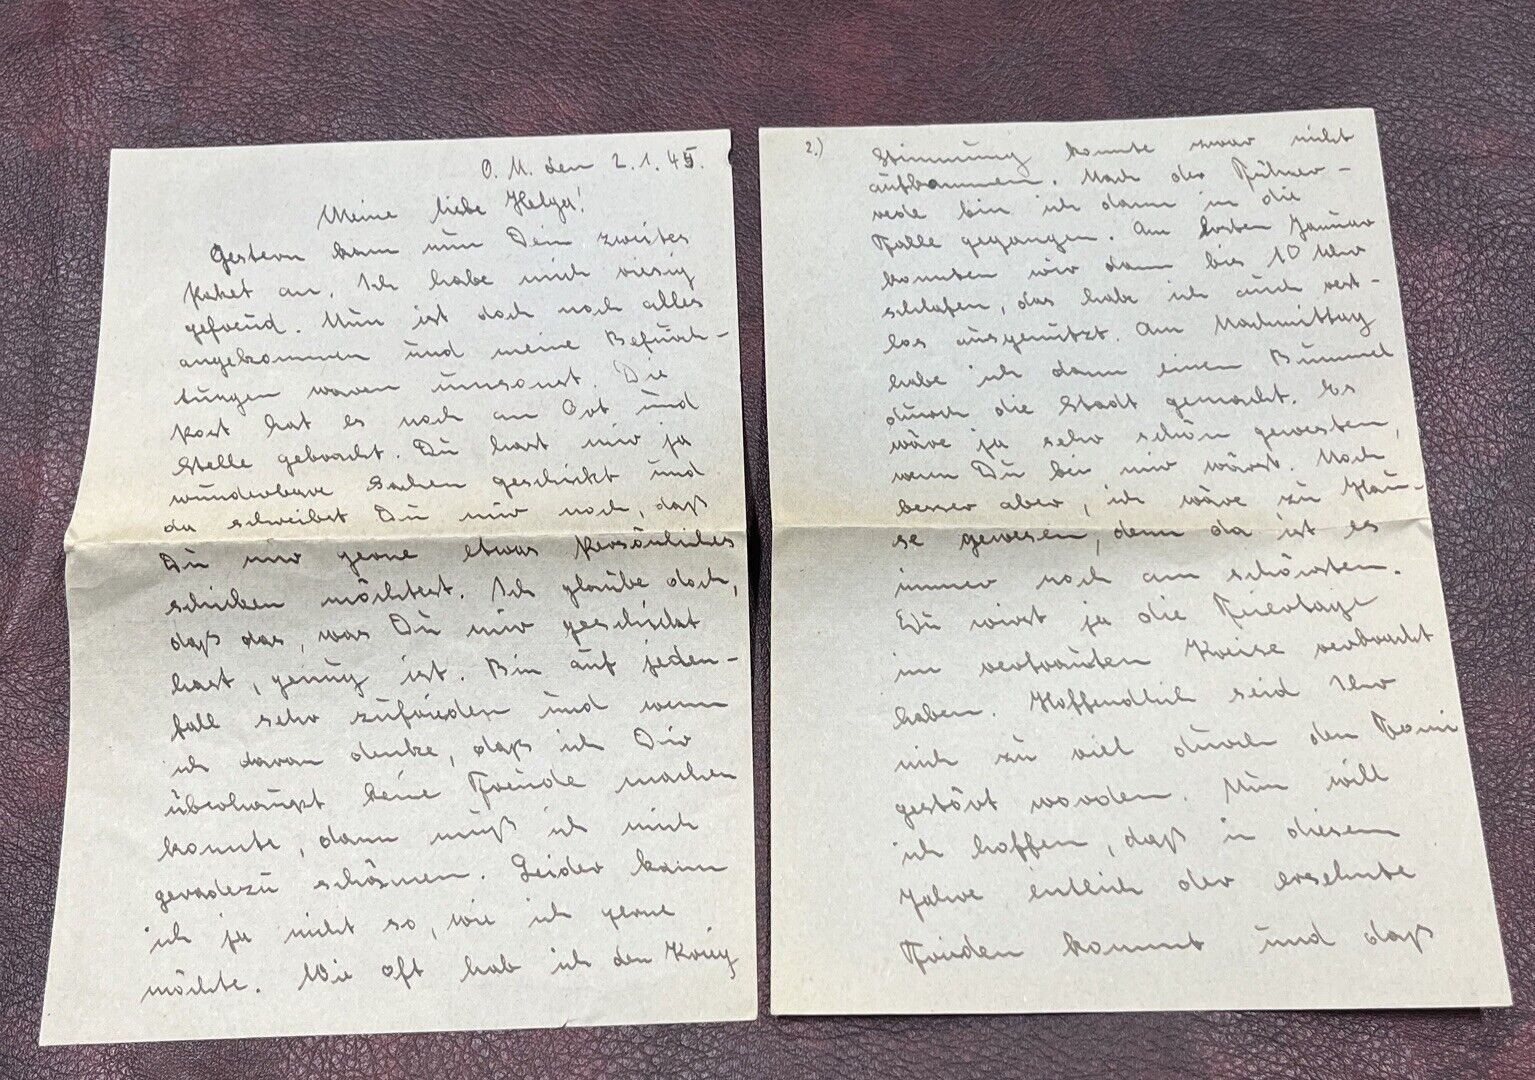 O. M. den 2.1.45.
Meine liebe Helga!
Gestern kam nun Dein zweites
Paket an. Ich habe mich riesig
gefreud. Nun ist doch noch alles
angekommen und meine Befürch-
tungen waren umsonst. Die
Post hat es noch an Ort und
Stelle gebracht. Du hast mir ja
wunderbare Sachen geschickt und
da schreibst Du mir noch, daß
Du mir gerne etwas Persönliches
schicken möchtest. Ich glaube doch,
daß das, was Du mir geschickt
hast, genug ist. Bin auf jeden-
fall sehr zufrieden und wenn
ich daran denke, daß ich Dir
überhaupt keine Freude machen
konnte, dann muß ich mich
geradezu schämen. Leider kann
ich ja nicht so, wie ich gerne
möchte. Wie oft hab ich den Krieg
2.)
Stimmung konnte zwar nicht
aufkommen. Nach der Führer-
rede bin ich dann in die
Falle gegangen. Am ersten Januar
konnten wir dann bis 10 Uhr
schlafen, das habe ich auch rest-
los ausgenützt. Am Nachmittag
habe ich dann einen Bummel
durch die Stadt gemacht. Es
wäre ja sehr schön gewesten,
wenn Du bei mir wärst. Noch
besser aber, ich wäre zu Hau-
se gewesen, denn da ist es
immer noch am schönsten.
Du wirst ja die Feiertage
im vertrauten Kreise verbracht
haben. Hoffendlich seid Ihr
nich zu viel durch den Tomi
gestört worden. Nun will
ich hoffen, daß in diesem
Jahre entlich der ersehnte
Frieden kommt und daß